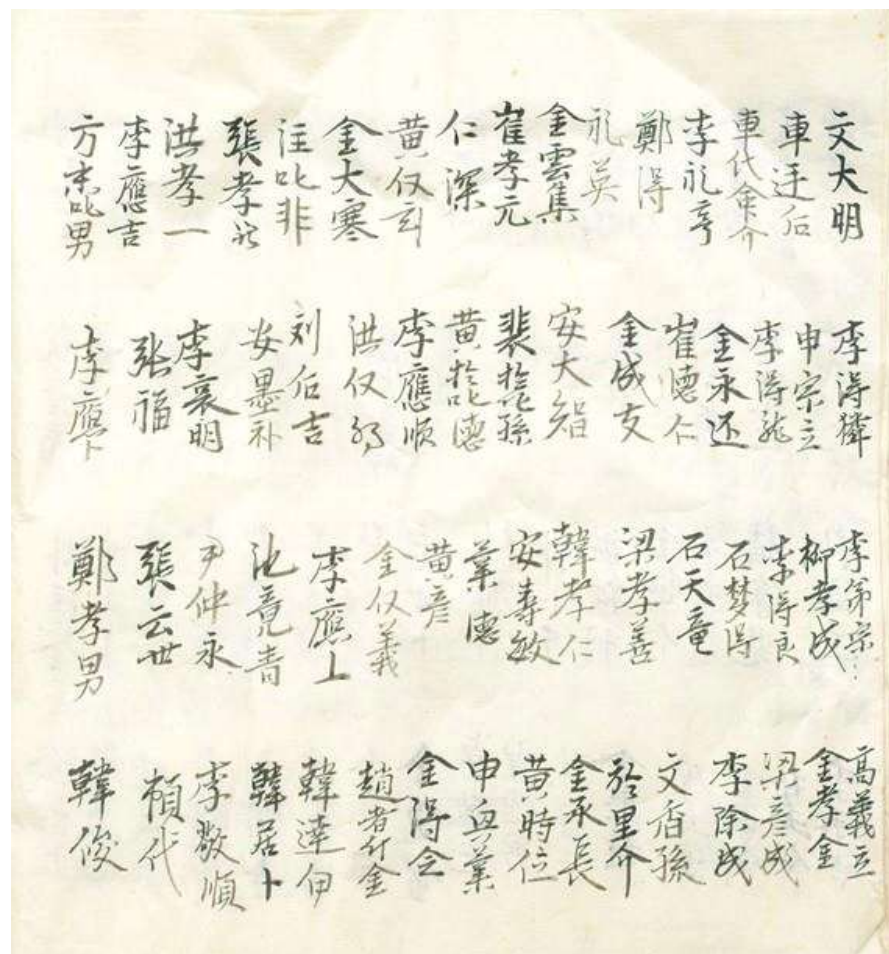 文大明
車廷石
車代命介
李礼亨
鄭得
礼英
金雲集
崔孝元
仁深
黃仅
金大寒
注叱非
張孝
洪孝一
李應吉
方末叱男
李得
申宗立
李得龍
金永还
崔德仁
金成友
安大智
裴於叱孫
黃於叱德
李應順
洪仅
刘石吉
安墨补
李襄明
张福
李應卜
李第宗
柳孝成
李得良
石梦得
石天竜
梁孝善
韓孝仁
安壽敏
業德
黃彦
金仅義
李應上
池竟青
尹仲永
張云世
鄭孝男
高義立
金孝金
梁彦成
李除成
文香孫
於里介
金承長
黃時位
申與業
金得
趙者斤金
韓達伊
韓居卜
李敬順
代
韓俊